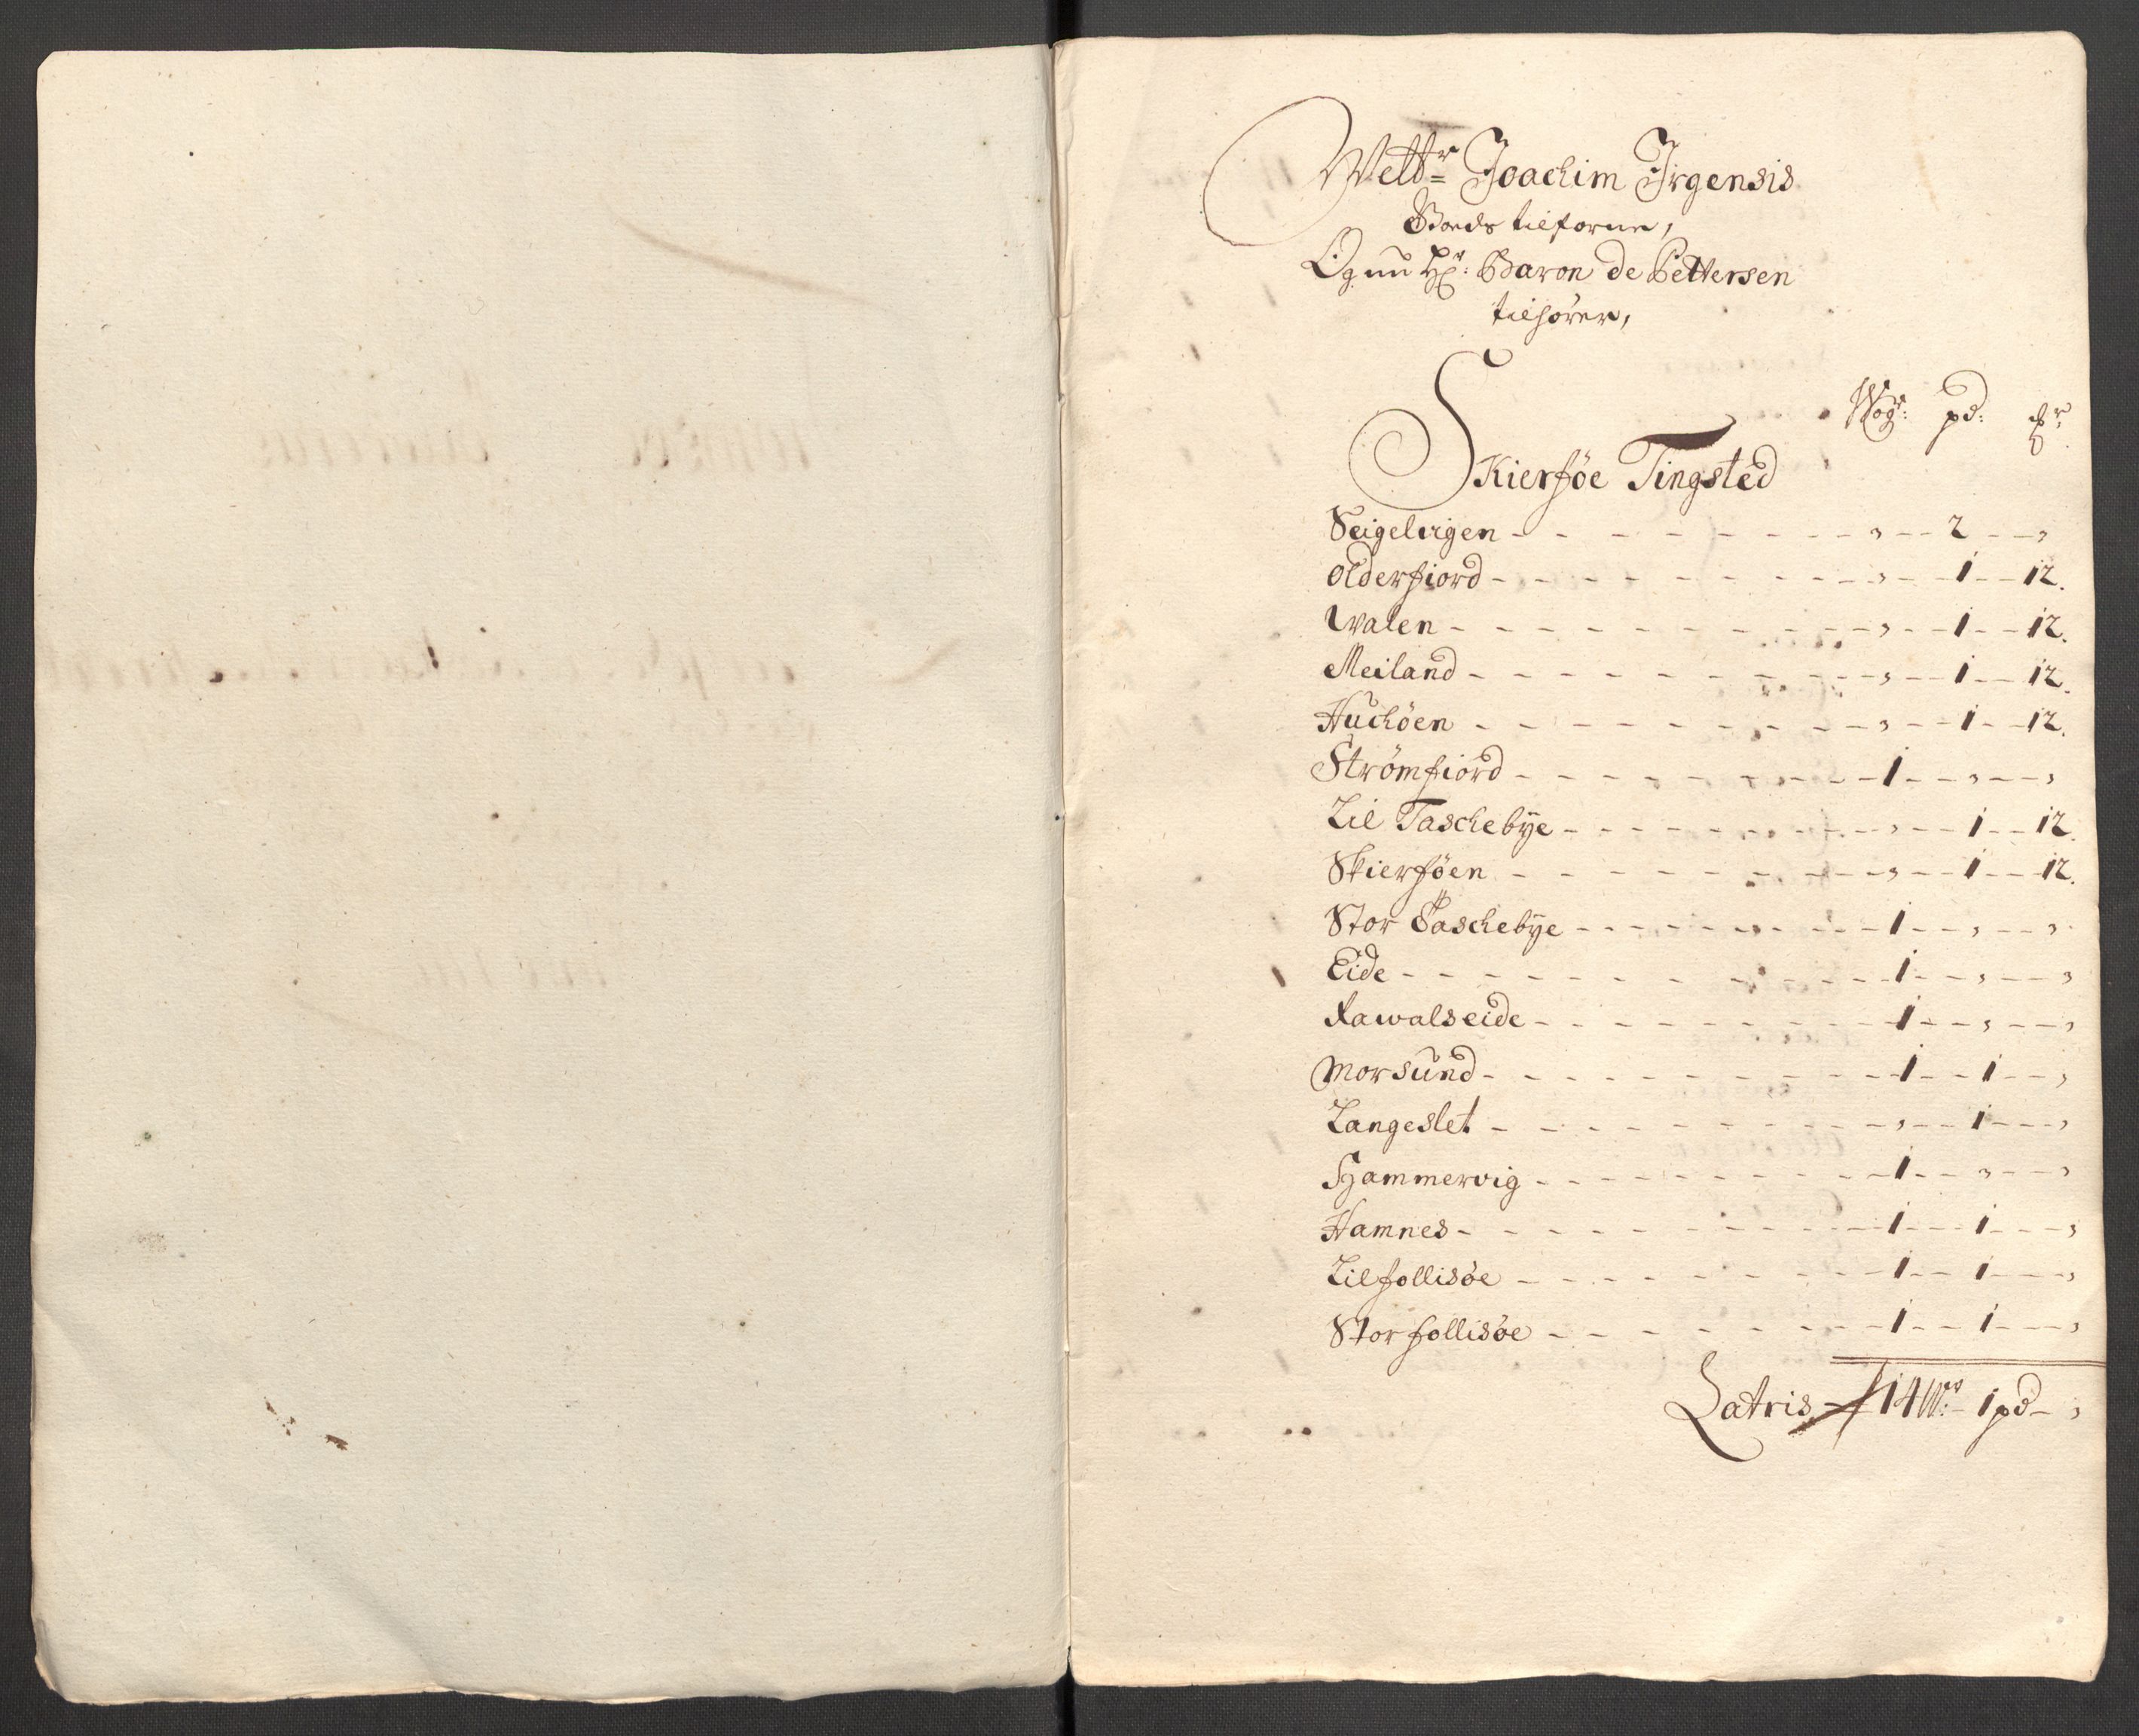 Wellb:r Joachim Irgensis
Goeds tilforne,
Og nu Hr: Baron de Pettersen
tilhører,
Wog: pd: xr
Skierføe Tingsted
Seigelvigen - - - , - - 2 - - ,
Olderfiord - - - , - - 1 - - 12.
Walen - - - , - - 1 - - 12.
Meiland - - - , - - 1 - - 12.
Huchöen - - - , - - 1 - - 12.
Strömfiord - - - 1 - - , - - ,
Lil Taschebÿe - - - , - - 1 - - 12.
Skierföen - - - , - - 1 - - 12.
Stor Taschebÿe - - - 1 - - , - - ,
Eide - - - 1 - - , - - ,
Rawalseide - - - 1 - - , - - ,
Morsund - - - 1 - - 1 - - ,
Langeslet - - - , - - 1 - - ,
Hammervig - - - 1 - - , - - ,
Hamnes - - - 1 - - 1 - - ,
Lilfollisöe - - - 1 - - 1 - - ,
Storfollisöe - - - 1 - - 1 - - ,
Latris - 14 W: - 1 pd - ,